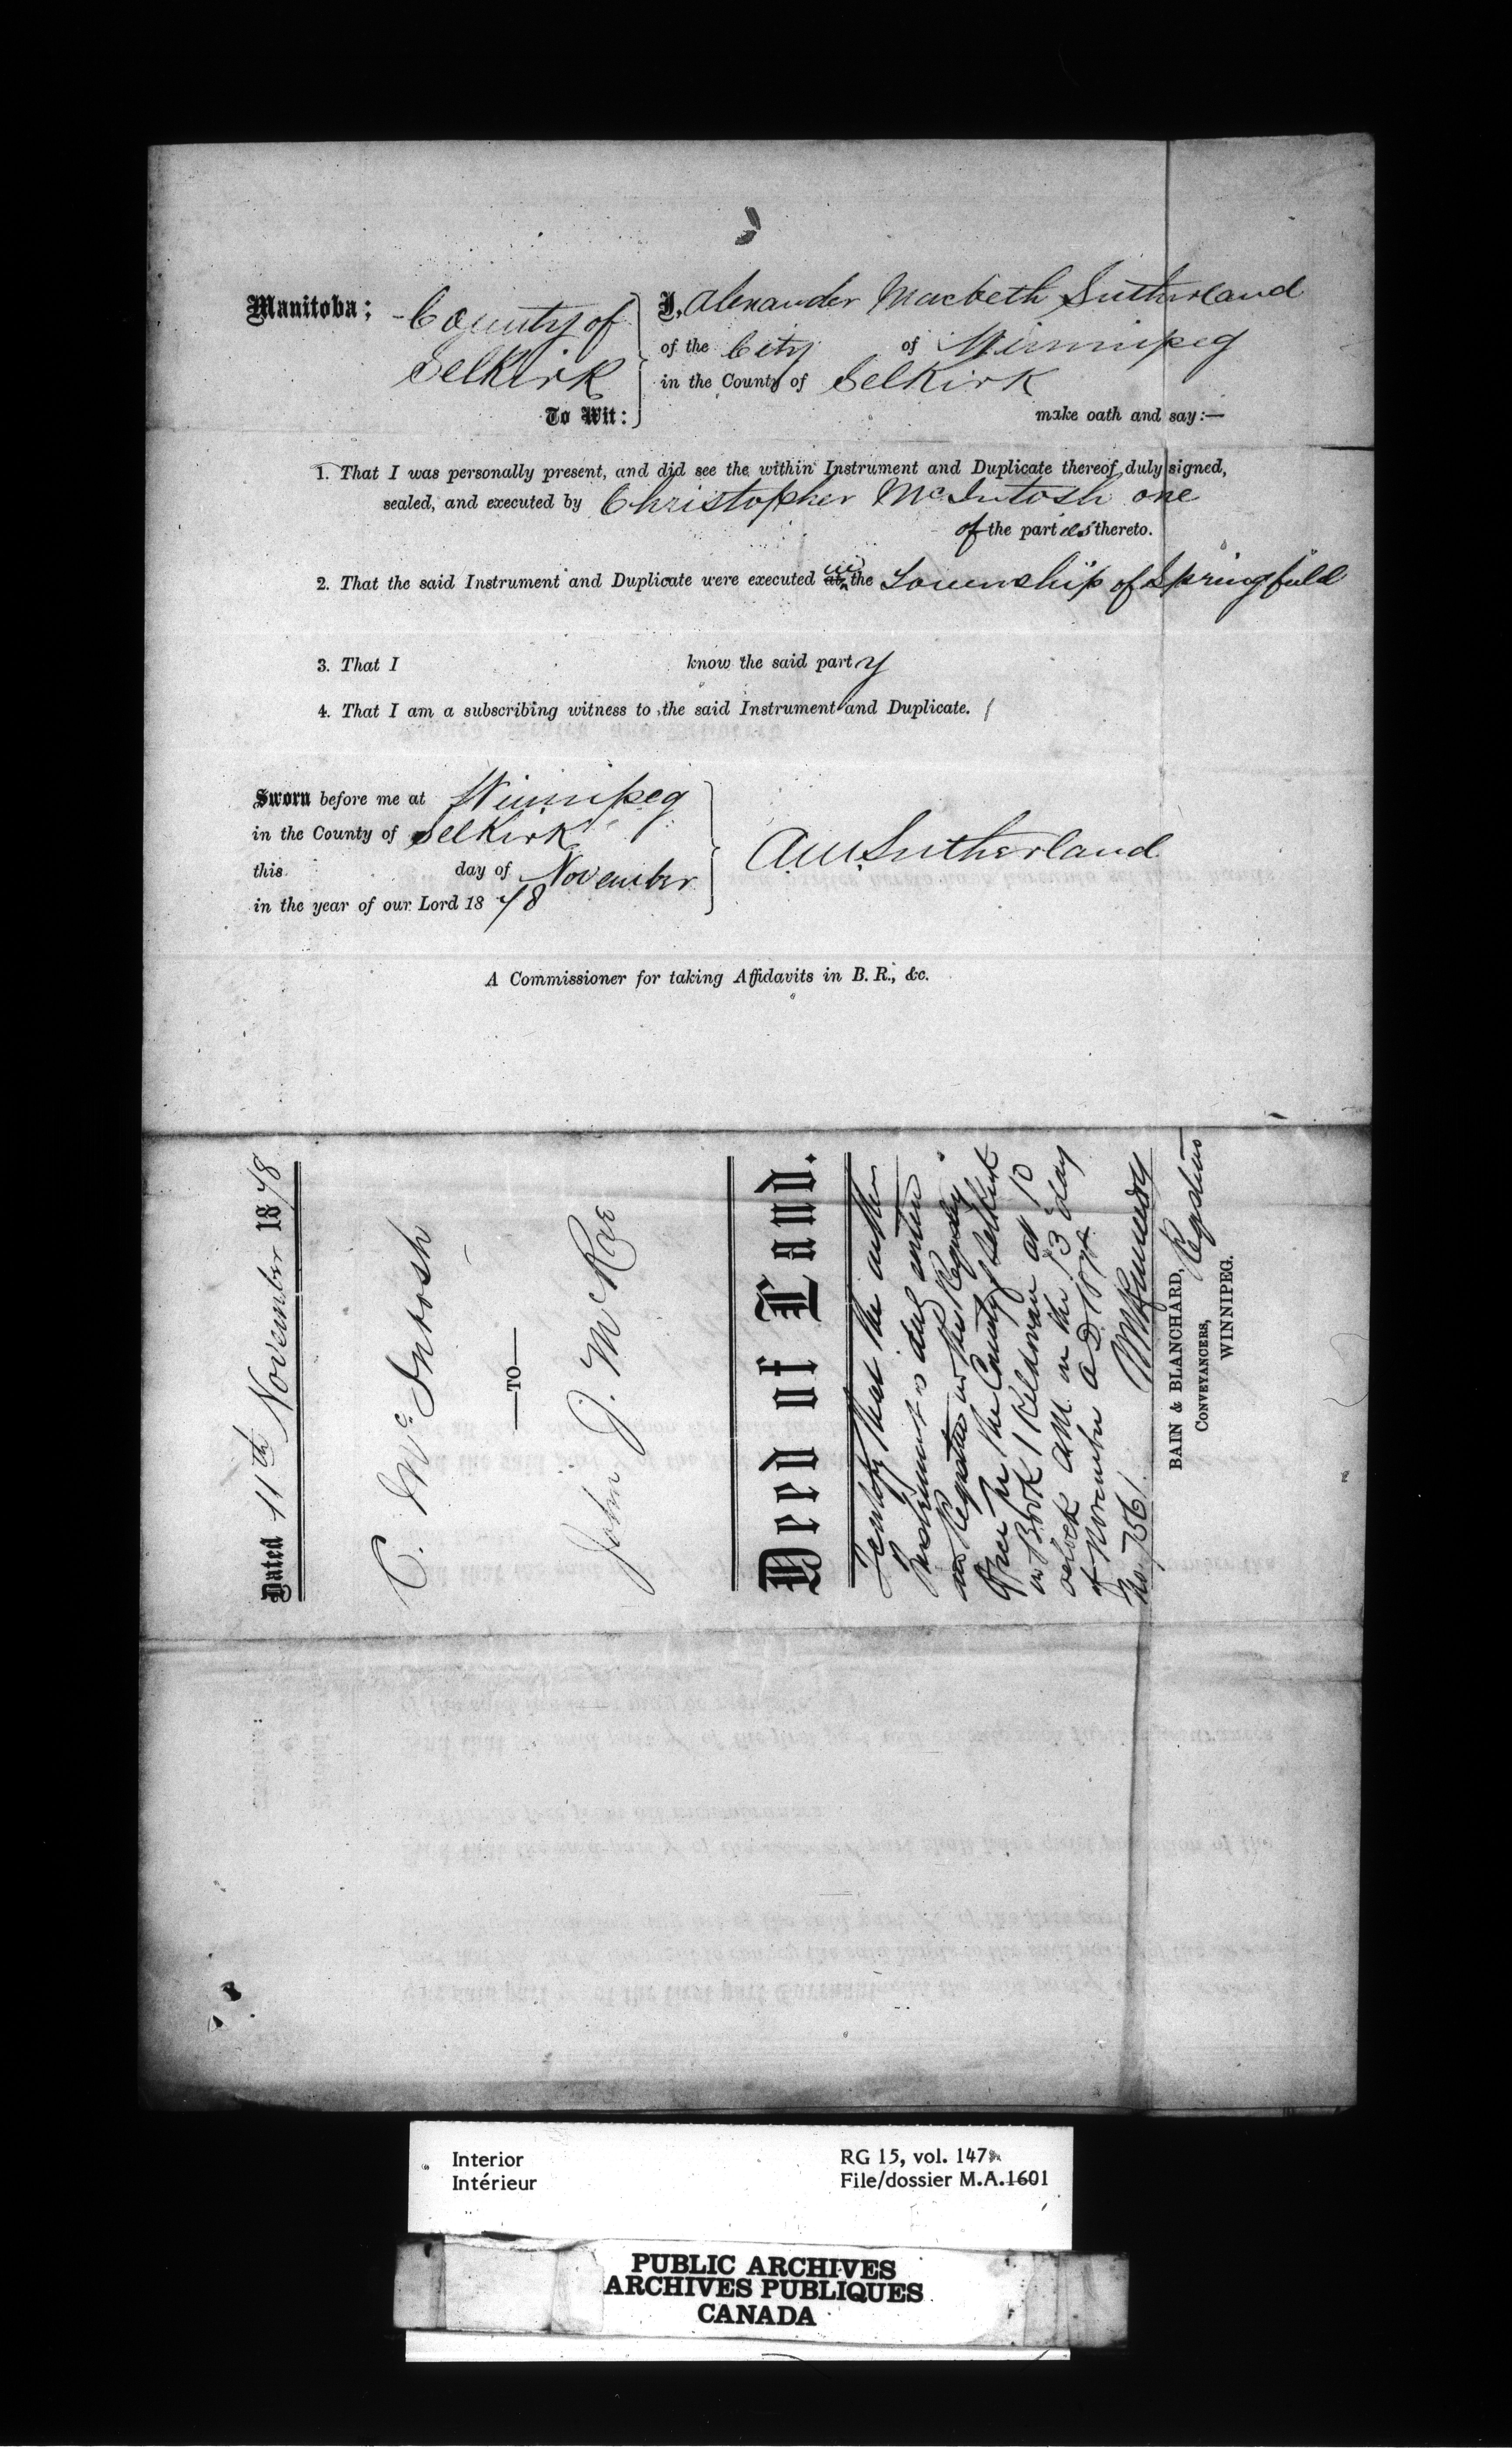 Manitoba: County of Selkirk To Wit:
I, Alexander Macbeth Sutherland
of the City of Winnipeg
in the County of Selkirk
make oath and say:—
1. That I was personally present, and did see the within Instrument and Duplicate thereof duly signed,
sealed, and executed by Christopher McIntosh one
of the parties thereto.
2. That the said Instrument and Duplicate were executed at in the Township of Springfield
3. That I know the said party
4. That I am a subscribing witness to the said Instrument and Duplicate.
Sworn before me at Winnipeg
in the County of Selkirk
this day of November
in the year of our Lord 1878
A M Sutherland
A Commissioner for taking Affidavits in B. R., &c.
Dated 11th November 1878
C. McIntosh
—TO—
John J. McRae
Deed of Land.
I certify that the within
Instrument is duly entered
and Registered in the Registry
Office for the County of Selkirk
in Book 1 Kildonan at 10
oclock A.M. on the 13 day
of November A.D. 1878
No. 7561
Registrar
BAIN & BLANCHARD,
CONVEYANCERS,
WINNIPEG.
Interior
Intérieur
RG 15, vol. 147
File/dossier M.A.1601
PUBLIC ARCHIVES
ARCHIVES PUBLIQUES
CANADA